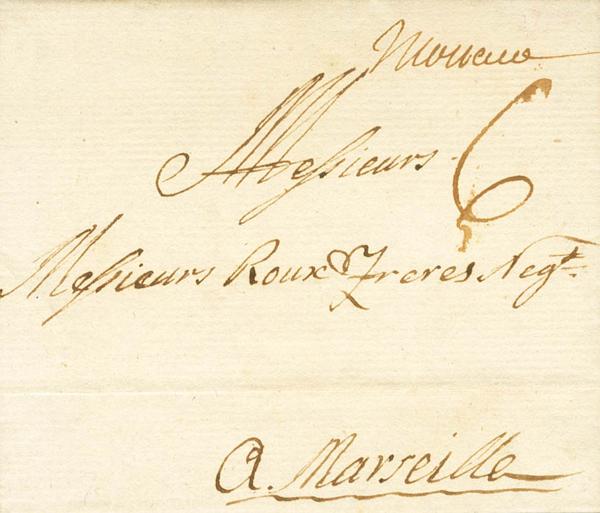 Moneuce
Messieurs 6
Messieurs Roux & Freres Negt.
A. Marseille